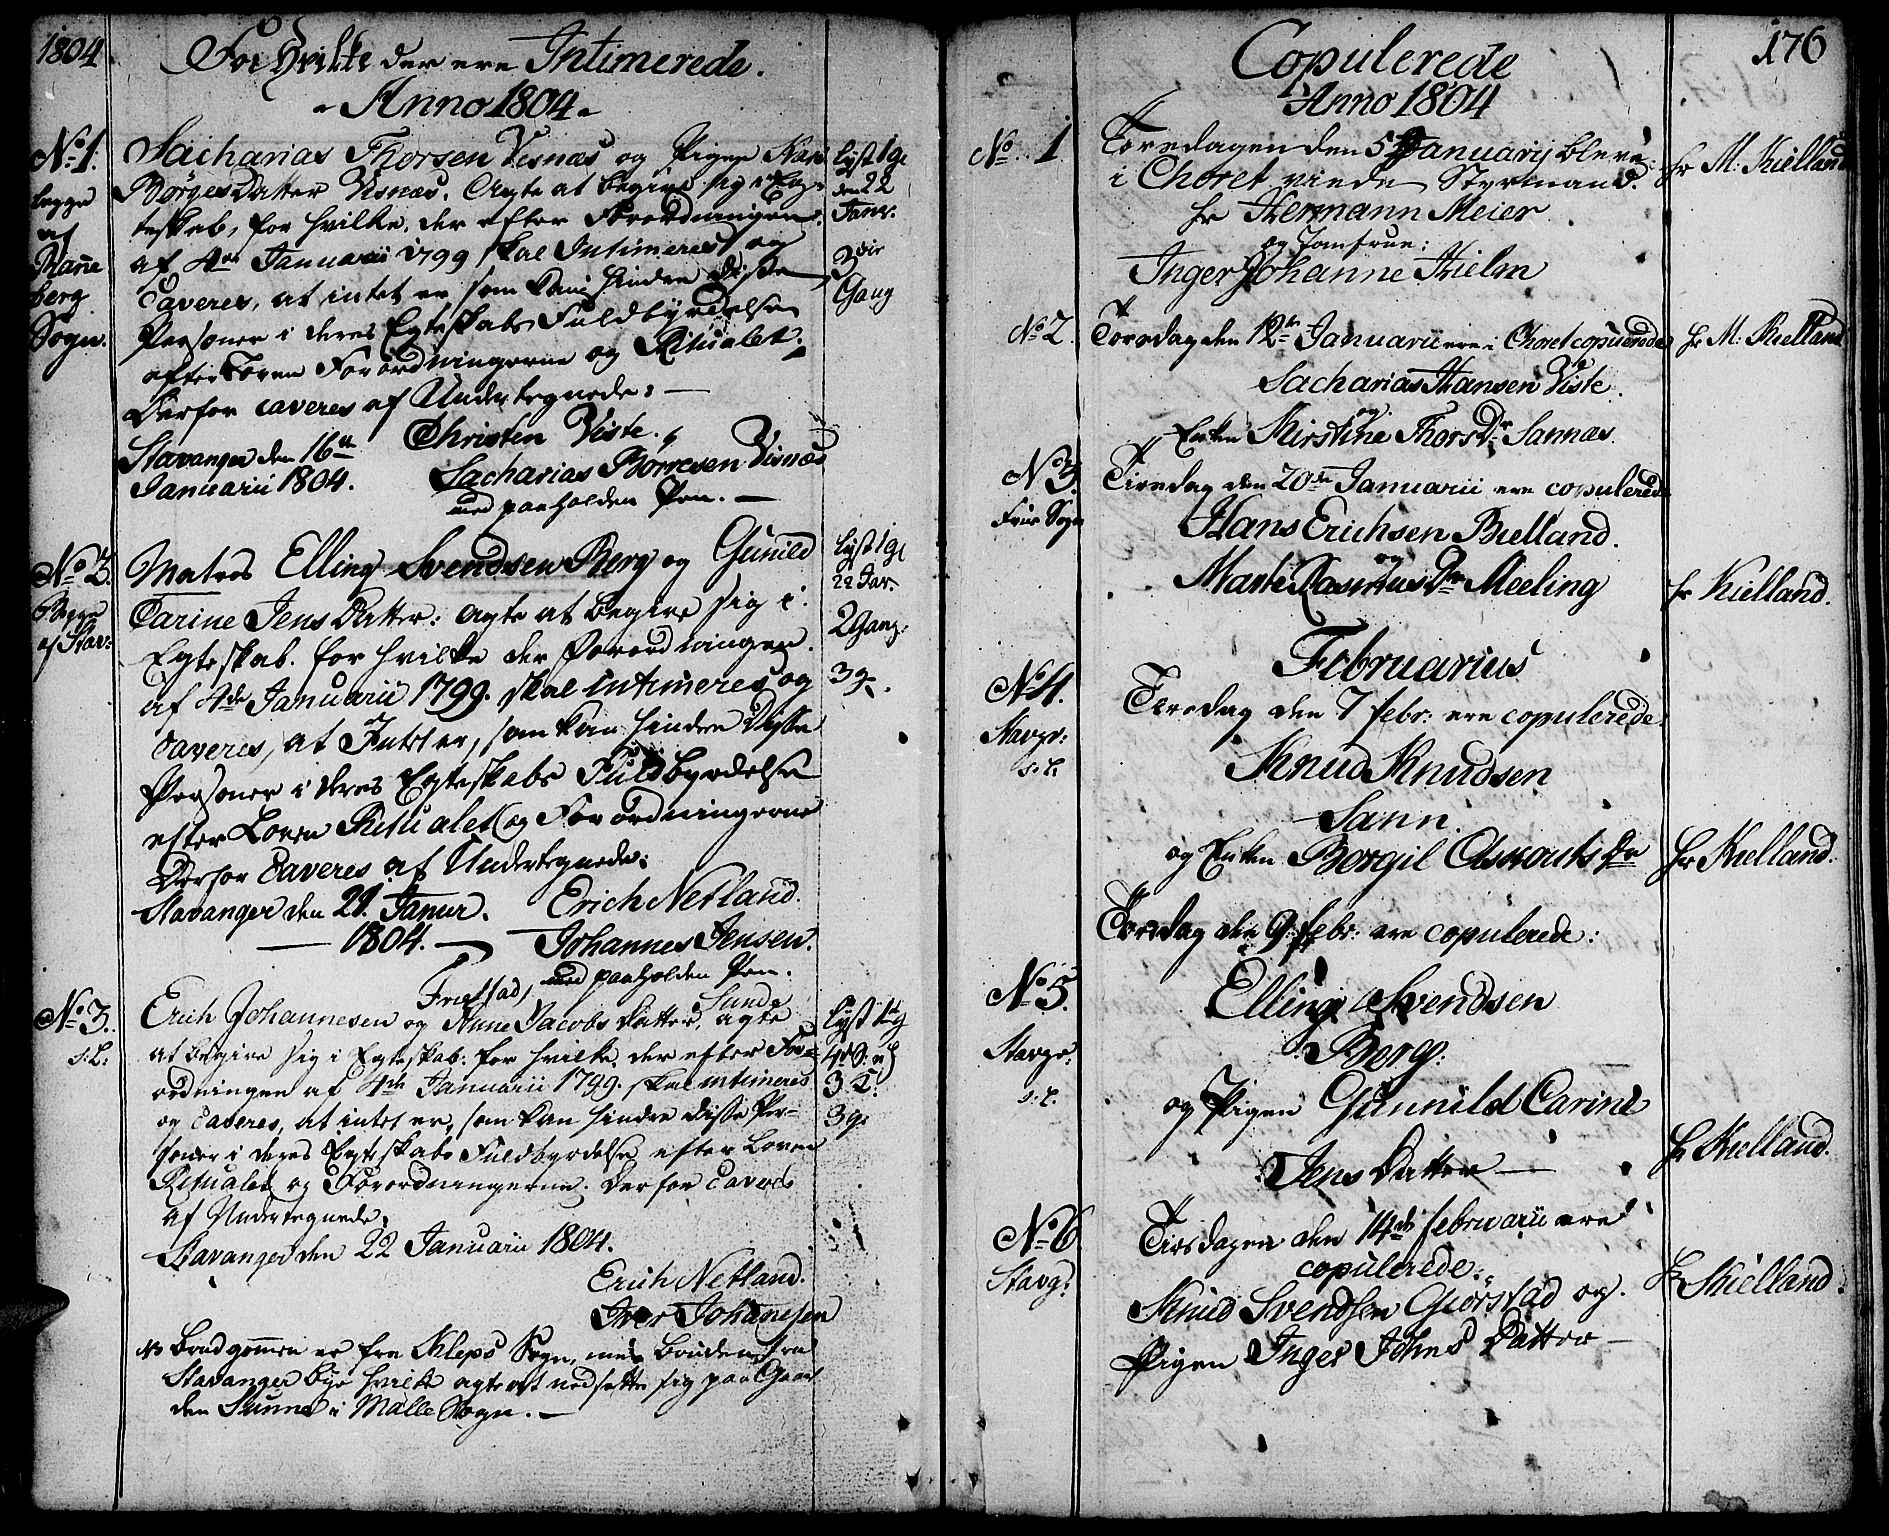 1804
For Hvilke der ere Intimerede.
Anno 1804
No 1.
begge
af
Ranne
berg
Sogn.
Sacharias Thorsen Visnæs og Pigen
BørgesDatter Visnæs. Agte at begive sig i Eg-
teskab, for hvilke, der efter Forordningen
af 4de Januarii 1799 skal Intimeres og
Caveres, at intet er, som kan hindre disse
Personer i deres Egteskabs Fuldbyrdelse
efter Loven Forordningerne og Ritualet.
Derfor caveres af Undertegnede:
Stavanger den 16de
Januarii 1804.
Christen Viste.
Sacharias Børresen Visnæs
med paaholden Pen.
Lyst 1 g:
den 22
Janr.
3die
Gang
No 2.
Begge
af Stav:
Matros Elling Svendsen Berg og Gunild
Carine Jens Datter: agte at begive sig i
Egteskab. for hvilke der Forordningen
af 4de Januarii 1799. skal intimeres og
Caveres, at Intet er, som kan hindre disse
Personer i deres Egteskabs Fuldbyrdelse
efter Loven Ritualet og Forordningerne
Derfor Caveres af Undertegnede:
Stavanger den 21. Janur.
1804.
Erich Netland.
Johannes Jensen.
med paaholden Pen.
Lyst 1 g:
22 Jan.
2 Gang:
3 g.
No 3.
s: L:
Erich Johannesen og Anne Jacobs Datter, Sunde agte
at begive sig i Egteskab. for hvilke der efter For=
ordningen af 4de Januarii 1799. skal intimeres
og Caveres, at intet er, som kan hindre disse Per-
soner i deres Egteskabs Fuldbyrdelse efter Loven
Ritualet og Forordningerne. Derfor Caveres
af Undertegnede.
Stavanger den 22 Januarii 1804.
Erich Netland.
Iver Johanesen
NB Brudgommen er fra Kleps Sogn, men Bruden fra
Stavanger Bye hvilke agte at nedsette sig paa Gaar
den Sunne i Malle Sogn.
Lyst 1 g
3 g.
176
Copulerede
Anno 1804
No. 1
Torsdagen den 5 Januarij bleve
i Choret viede Styrmand.
Hr Hermann Meier
og Jomfrue:
Inger Johanne Hielm
Hr M. Kielland
No 2
Torsdag den 12te Januarii ere i Choret copulerede
Sacharias Hansen Viste.
og
Enken Kirstine Thors Dr Sannæs.
Hr M. Kielland
No 3.
Frue Sogn
Tirsdag den 20de Januarii ere copulerede
Hans Erichsen Bielland.
og
Marte Rasmus Dr Meeling
Hr Kielland.
Februarius
No 4.
Stavgr:
s. L.
Tirsdag den 7 Febr: ere copulerede
Knud Knudsen
Sann.
og Enken Borgil Asxouts Dr
Hr Kielland.
Torsdag den 9 Febr: ere copulerede:
No 5.
Stavgr:
s: L.
Elling Svendsen
Berg.
og Pigen Gunnild Carine
Jens Datter
Hr Kielland.
No 6
Stavg:
Tirsdagen den 14de Februarii ere
copulerede:
Knud Svendsen Giørstad og.
Pigen Inger Johns Datter
Hr Kielland.